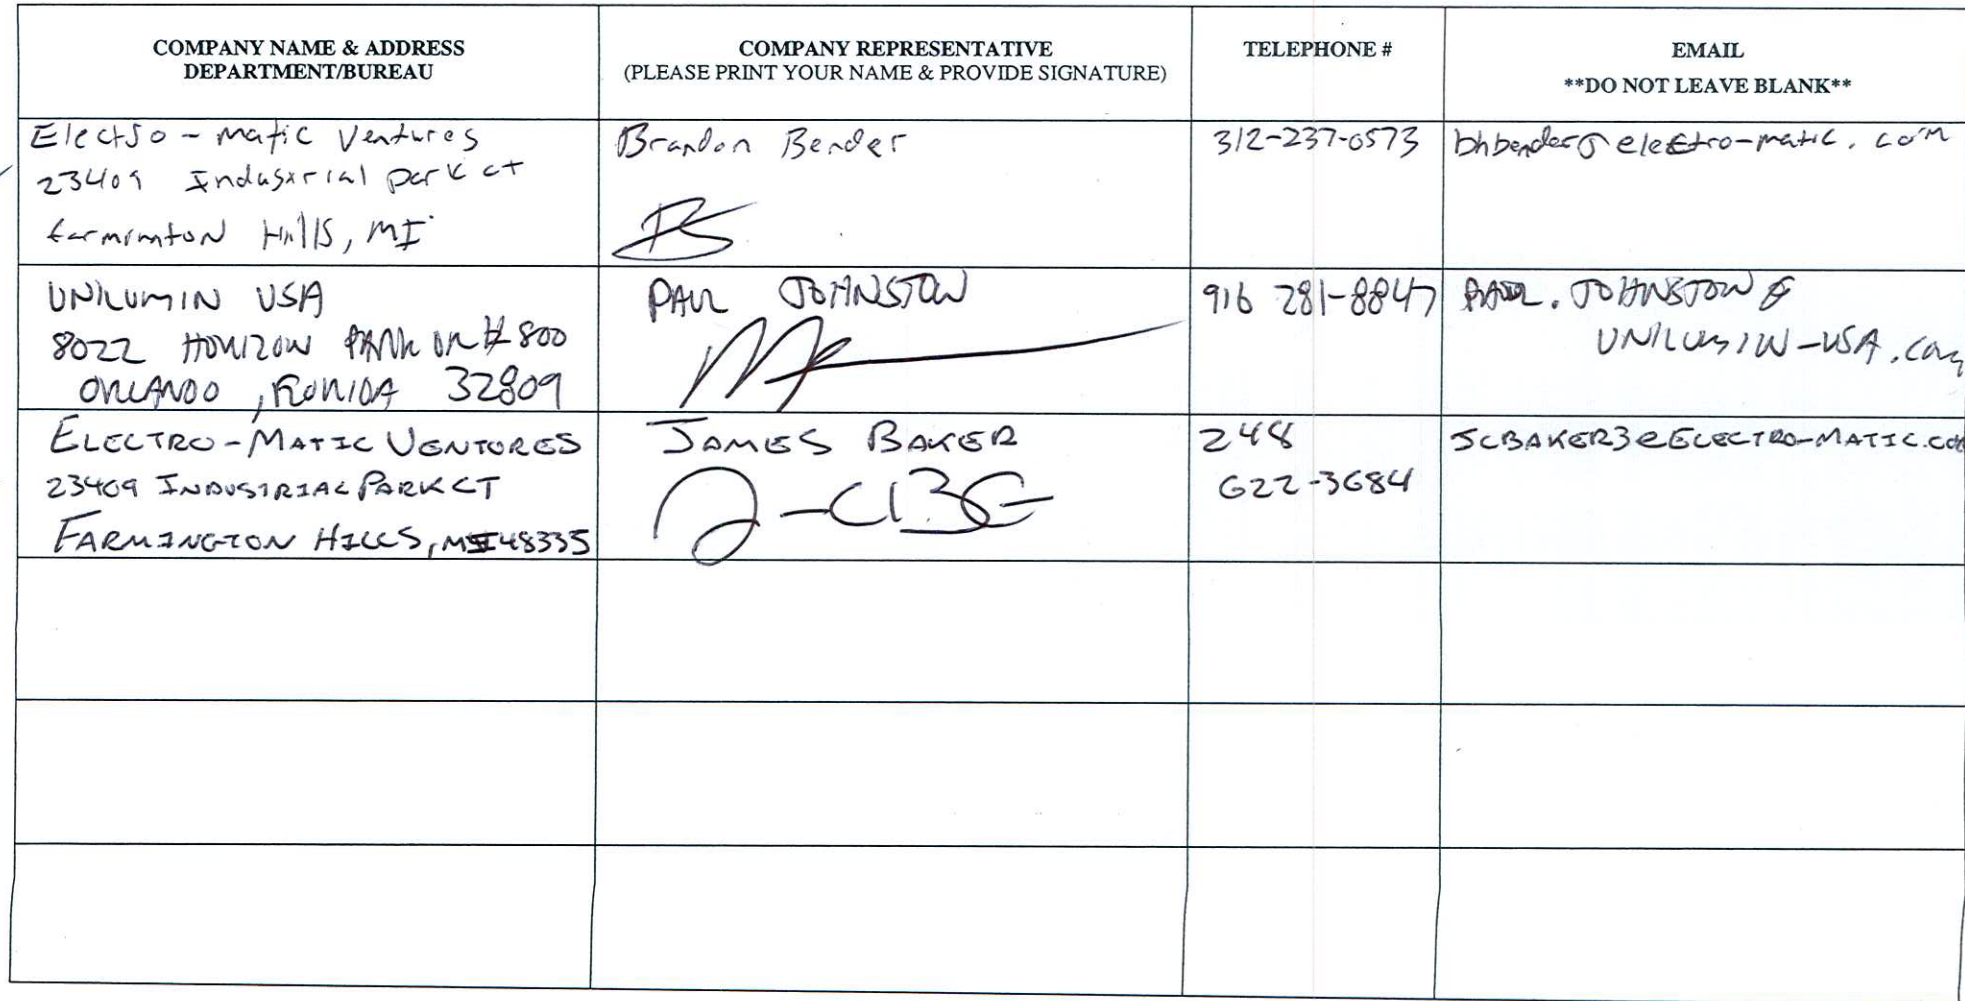 COMPANY NAME & ADDRESS
DEPARTMENT/BUREAU
COMPANY REPRESENTATIVE
(PLEASE PRINT YOUR NAME & PROVIDE SIGNATURE)
TELEPHONE #
EMAIL
**DO NOT LEAVE BLANK**
Electro-Matic Ventures
23409 Industrial park ct
farminton Hills, MI
Brandon Bender
312-237-0573
bhbender@electro-matic.com
UNILUMIN USA
8022 HORIZON PARK DR #800
ORLANDO, FLORIDA 32809
PAUL JOHNSTON
916 281-8847
PAUL.JOHNSTON@
UNILUMIN-USA.com
ELECTRO-MATIC VENTURES
23409 INDUSTRIAL PARK CT
FARMINGTON HILLS, MI 48335
JAMES BAKER
248
622-3684
JCBAKER3@ELECTRO-MATIC.COM